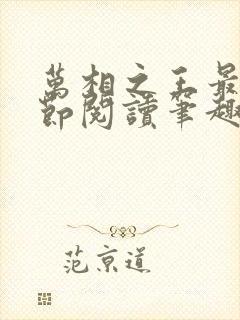 萬相之王最
節閱讀筆趣
范京道